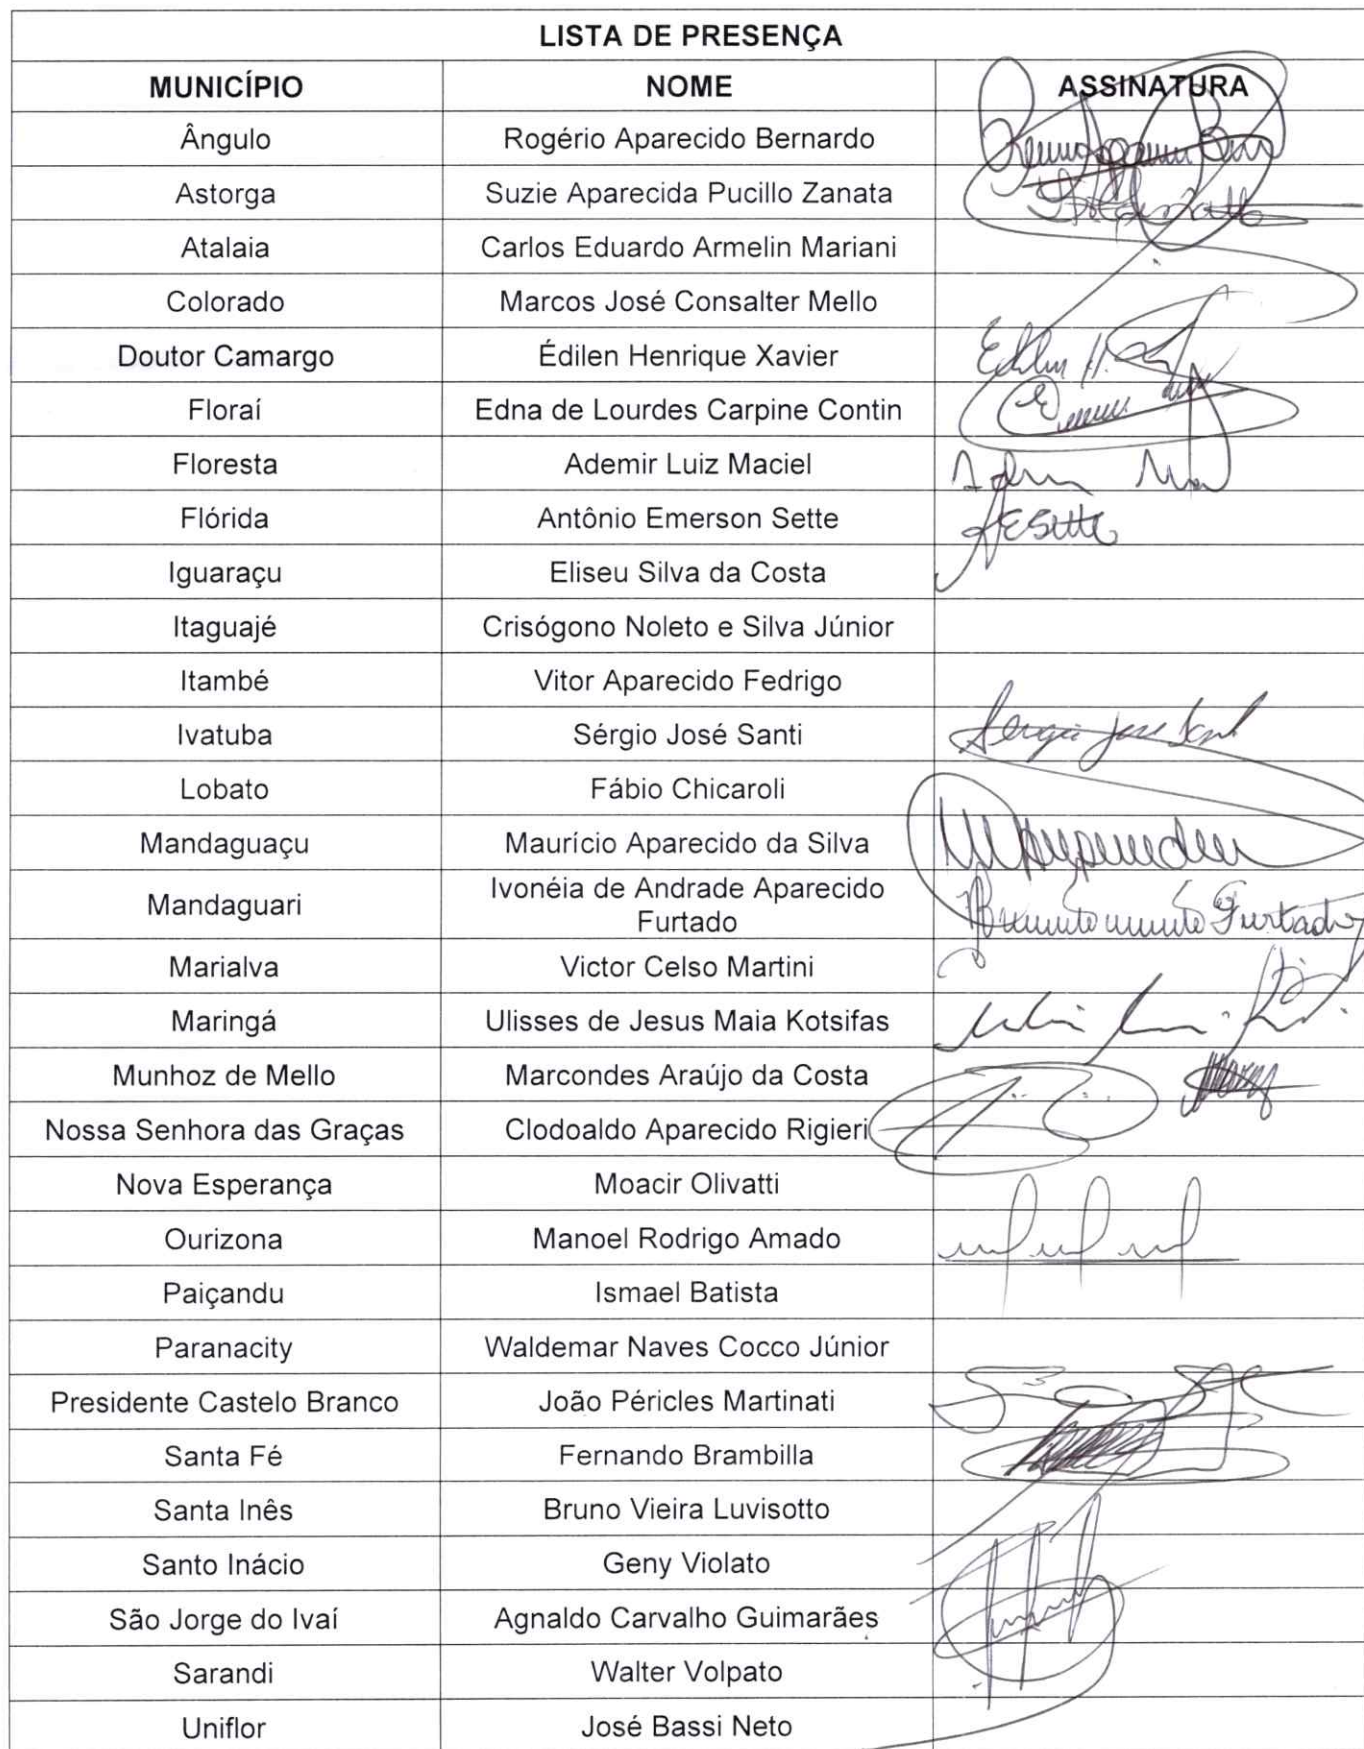 LISTA DE PRESENÇA
MUNICÍPIO NOME ASSINATURA
Ângulo Rogério Aparecido Bernardo
Astorga Suzie Aparecida Pucillo Zanata
Atalaia Carlos Eduardo Armelin Mariani
Colorado Marcos José Consalter Mello
Doutor Camargo Édilen Henrique Xavier
Floraí Edna de Lourdes Carpine Contin
Floresta Ademir Luiz Maciel
Flórida Antônio Emerson Sette AESette
Iguaraçu Eliseu Silva da Costa
Itaguajé Crisógono Noleto e Silva Júnior
Itambé Vitor Aparecido Fedrigo
Ivatuba Sérgio José Santi Sergio Jose Santi
Lobato Fábio Chicaroli
Mandaguaçu Maurício Aparecido da Silva
Mandaguari Ivonéia de Andrade Aparecido
Furtado Furtado
Marialva Victor Celso Martini
Maringá Ulisses de Jesus Maia Kotsifas
Munhoz de Mello Marcondes Araújo da Costa
Nossa Senhora das Graças Clodoaldo Aparecido Rigieri
Nova Esperança Moacir Olivatti
Ourizona Manoel Rodrigo Amado
Paiçandu Ismael Batista
Paranacity Waldemar Naves Cocco Júnior
Presidente Castelo Branco João Péricles Martinati
Santa Fé Fernando Brambilla
Santa Inês Bruno Vieira Luvisotto
Santo Inácio Geny Violato
São Jorge do Ivaí Agnaldo Carvalho Guimarães
Sarandi Walter Volpato
Uniflor José Bassi Neto